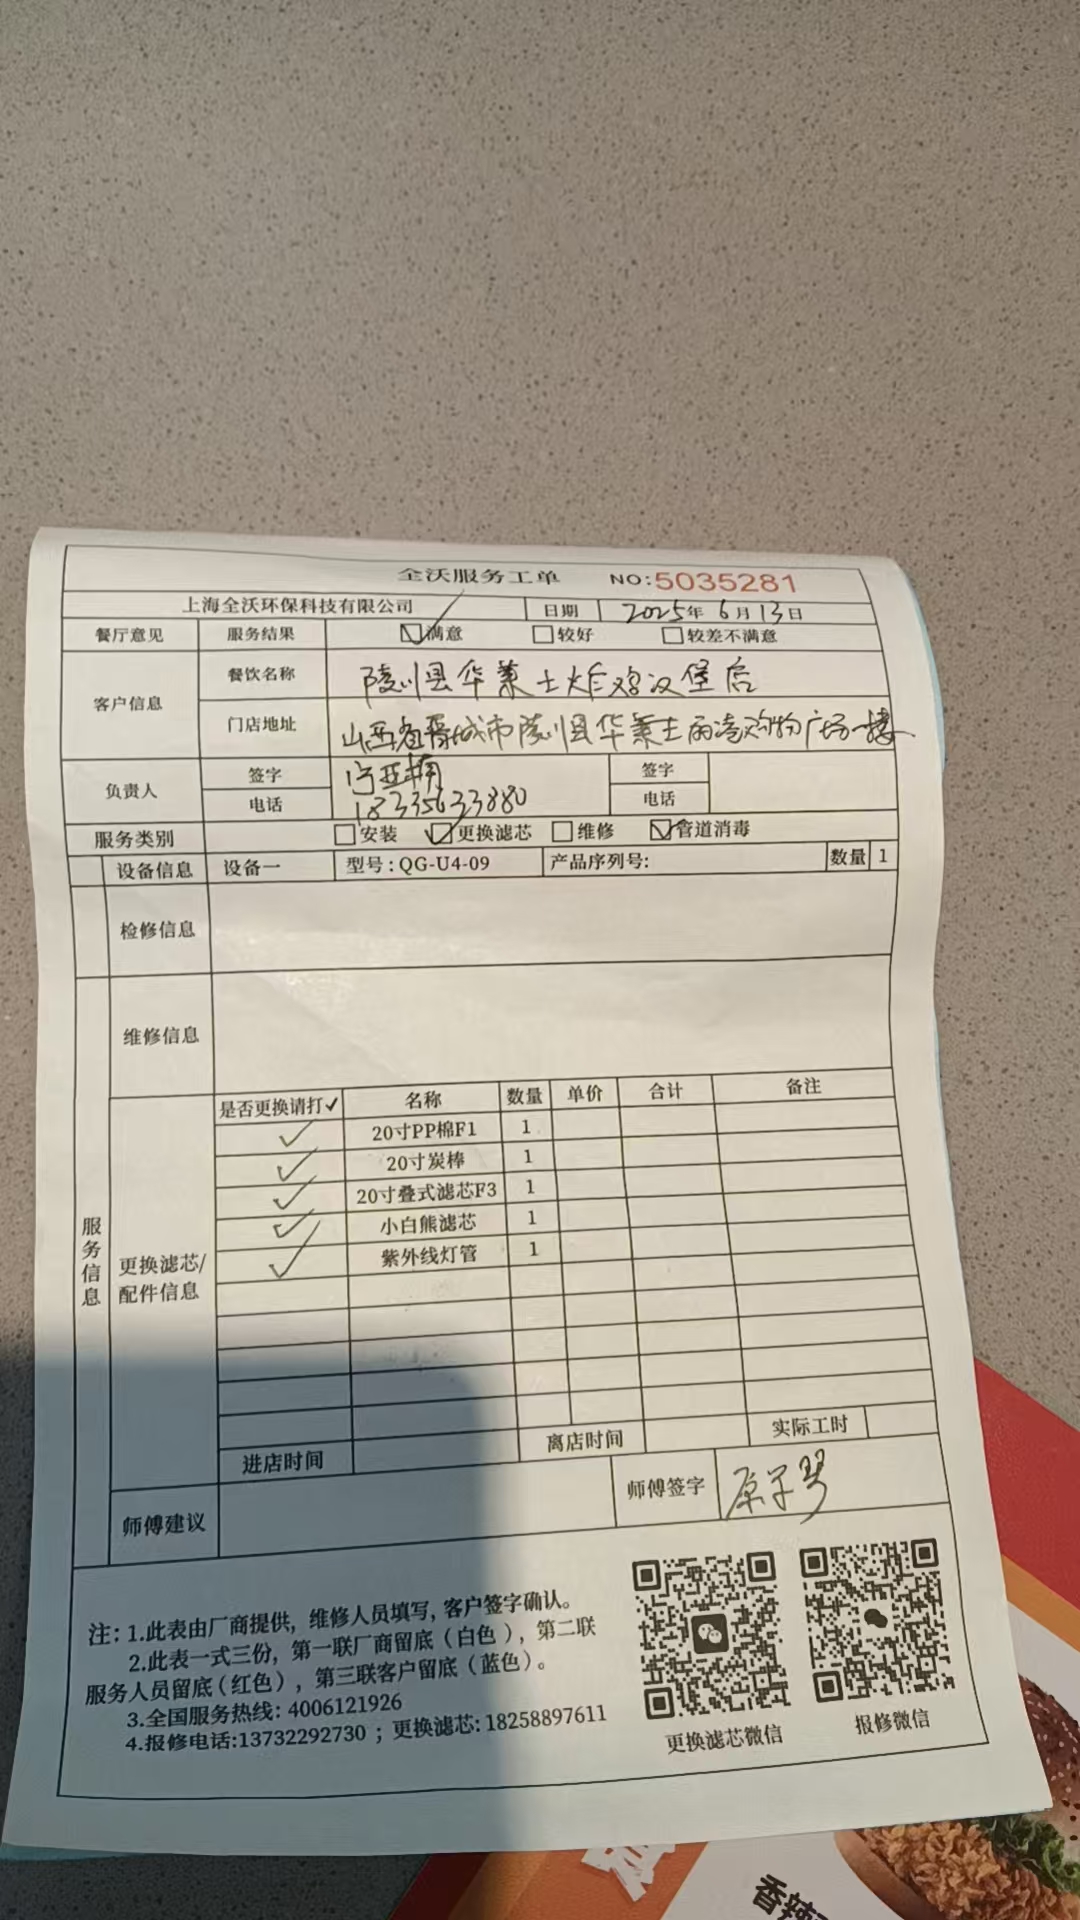 全沃服务工单 NO:5035281
上海全沃环保科技有限公司 日期 2025年6月13日
餐厅意见 服务结果 满意 较好 较差不满意
客户信息 餐饮名称 陵川县华莱士炸鸡汉堡店
门店地址 山西省晋城市陵川县华莱士丽凌购物广场一楼
负责人 签字 签字
电话 18335633880 电话
服务类别 安装 更换滤芯 维修 管道消毒
设备信息 设备一 型号:QG-U4-09 产品序列号: 数量 1
检修信息
维修信息
服务信息
更换滤芯/配件信息
是否更换请打✓ 名称 数量 单价 合计 备注
✓ 20寸PP棉F1 1
✓ 20寸炭棒 1
✓ 20寸叠式滤芯F3 1
✓ 小白熊滤芯 1
✓ 紫外线灯管 1
进店时间 离店时间 实际工时
师傅建议 师傅签字
注:1.此表由厂商提供，维修人员填写,客户签字确认。
2.此表一式三份，第一联厂商留底（白色），第二联
服务人员留底（红色），第三联客户留底（蓝色）。
3.全国服务热线: 4006121926
4.报修电话:13732292730；更换滤芯: 18258897611
更换滤芯微信 报修微信
香辣